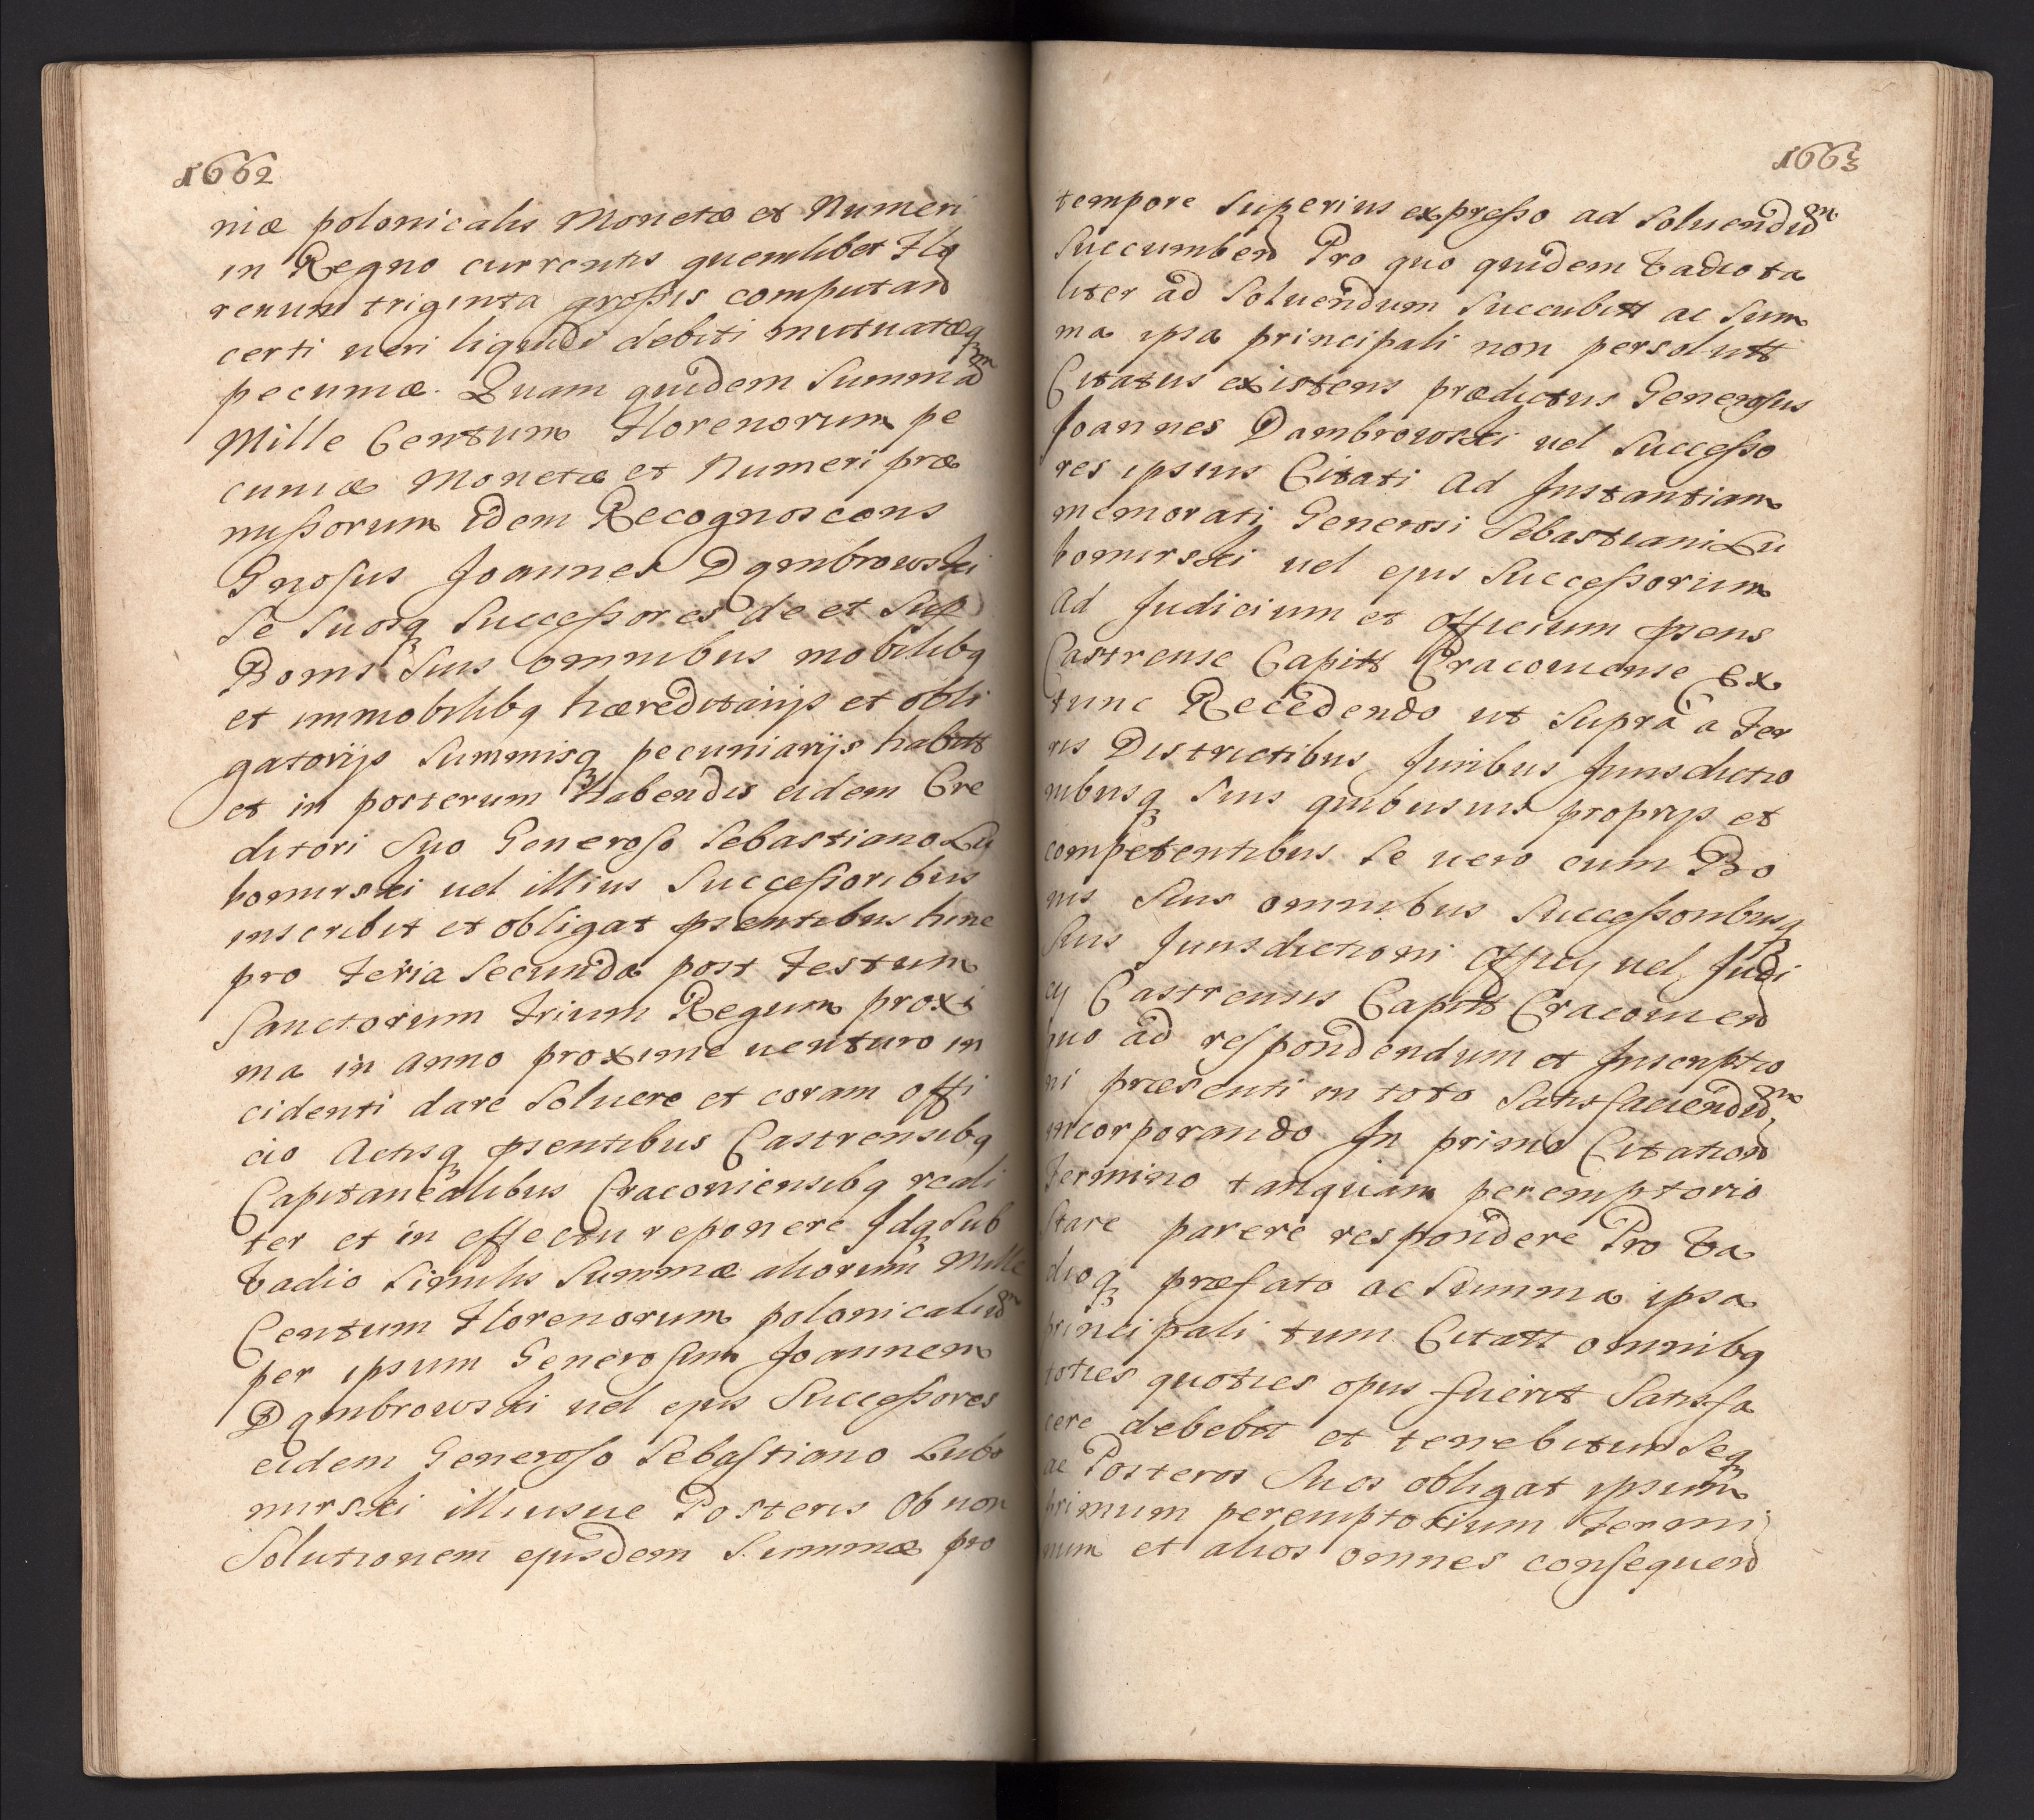 1662
niæ polonicalis Monetæ et Numeri
in Regno currentis quemlibet Flo
renum triginta grossis computand
certi veri liquidi debiti mutuatæq
pecuniæ. Quam quidem Summam
Mille Centum Florenorum pe
cuniæ Monetæ et Numeri præ
missorum idem Recognoscens
Gnosus Joannes Dąmbrowski
Se Suosq Successores de et Sup
Bonis Suis omnibus mobilibq
et immobilibq hæreditarijs et obli
gatorijs Summisq pecuniarijs habitt
et in posterum Habendis eidem Cre
ditori Suo Generoso Sebastiano Lu
bomirski uel illius Successoribus
inscribit et obligat psentibus hinc
pro Feria Secunda post Festum
Sanctorum Trium Regum proxi
ma in Anno proxime uenturo in
cidenti dare Soluere et coram offi
cio Actisq psentibus Castrensibq
Capitanealibus Cracoviensibq reali
ter et in effectu reponere Idq Sub
Vadio Similis Summæ aliorum Mille
Centum Florenorum polonicalium
per ipsum Generosum Joannem
Dąmbrowski uel ejus Successores
eidem Generoso Sebastiano Lubo
mirski illiusue Posteris Ob non
Solutionem ejusdem Summæ pro
1663
tempore Superius expresso ad Soluendum
Succumbend Pro quo quidem Vadio ta
liter ad Soluendum Succubitt ac Sum
ma ipsa principali non persolutt
Citatus existens prædictus Generosus
Joannes Dambrowski uel Successo
res ipsius Citati Ad Instantiam
memorati Generosi Sebastiani Lu
bomirski uel ejus Successorum
Ad Judicium et Officium psens
Castrense Capitt Cracouiense Ex
tunc Recedendo ut Supra a Ter
ris Districtibus Juribus Jurisdictio
nibusq Suis quibusuis proprijs et
competentibus Se uero cum Bo
nis Suis omnibus Successoribusq
Suis Jurisdictioni Officij uel Judi
cij Castrensis Capitt Cracouien
huo ad respondendum et Inscriptio
ni præsenti in toto Satisfaciendum
incorporando In primo Citation
Termino tanquam peremptorio
Stare parere respondere Pro Va
dioq præfato ac Summa ipsa
principali tum Citatt omnibq
toties quoties opus fuerit Satisfa
cere debebit et tenebitur Seq
ac Posteros Suos obligat ipsum
primum peremptorium Termi
num et alios omnes consequend